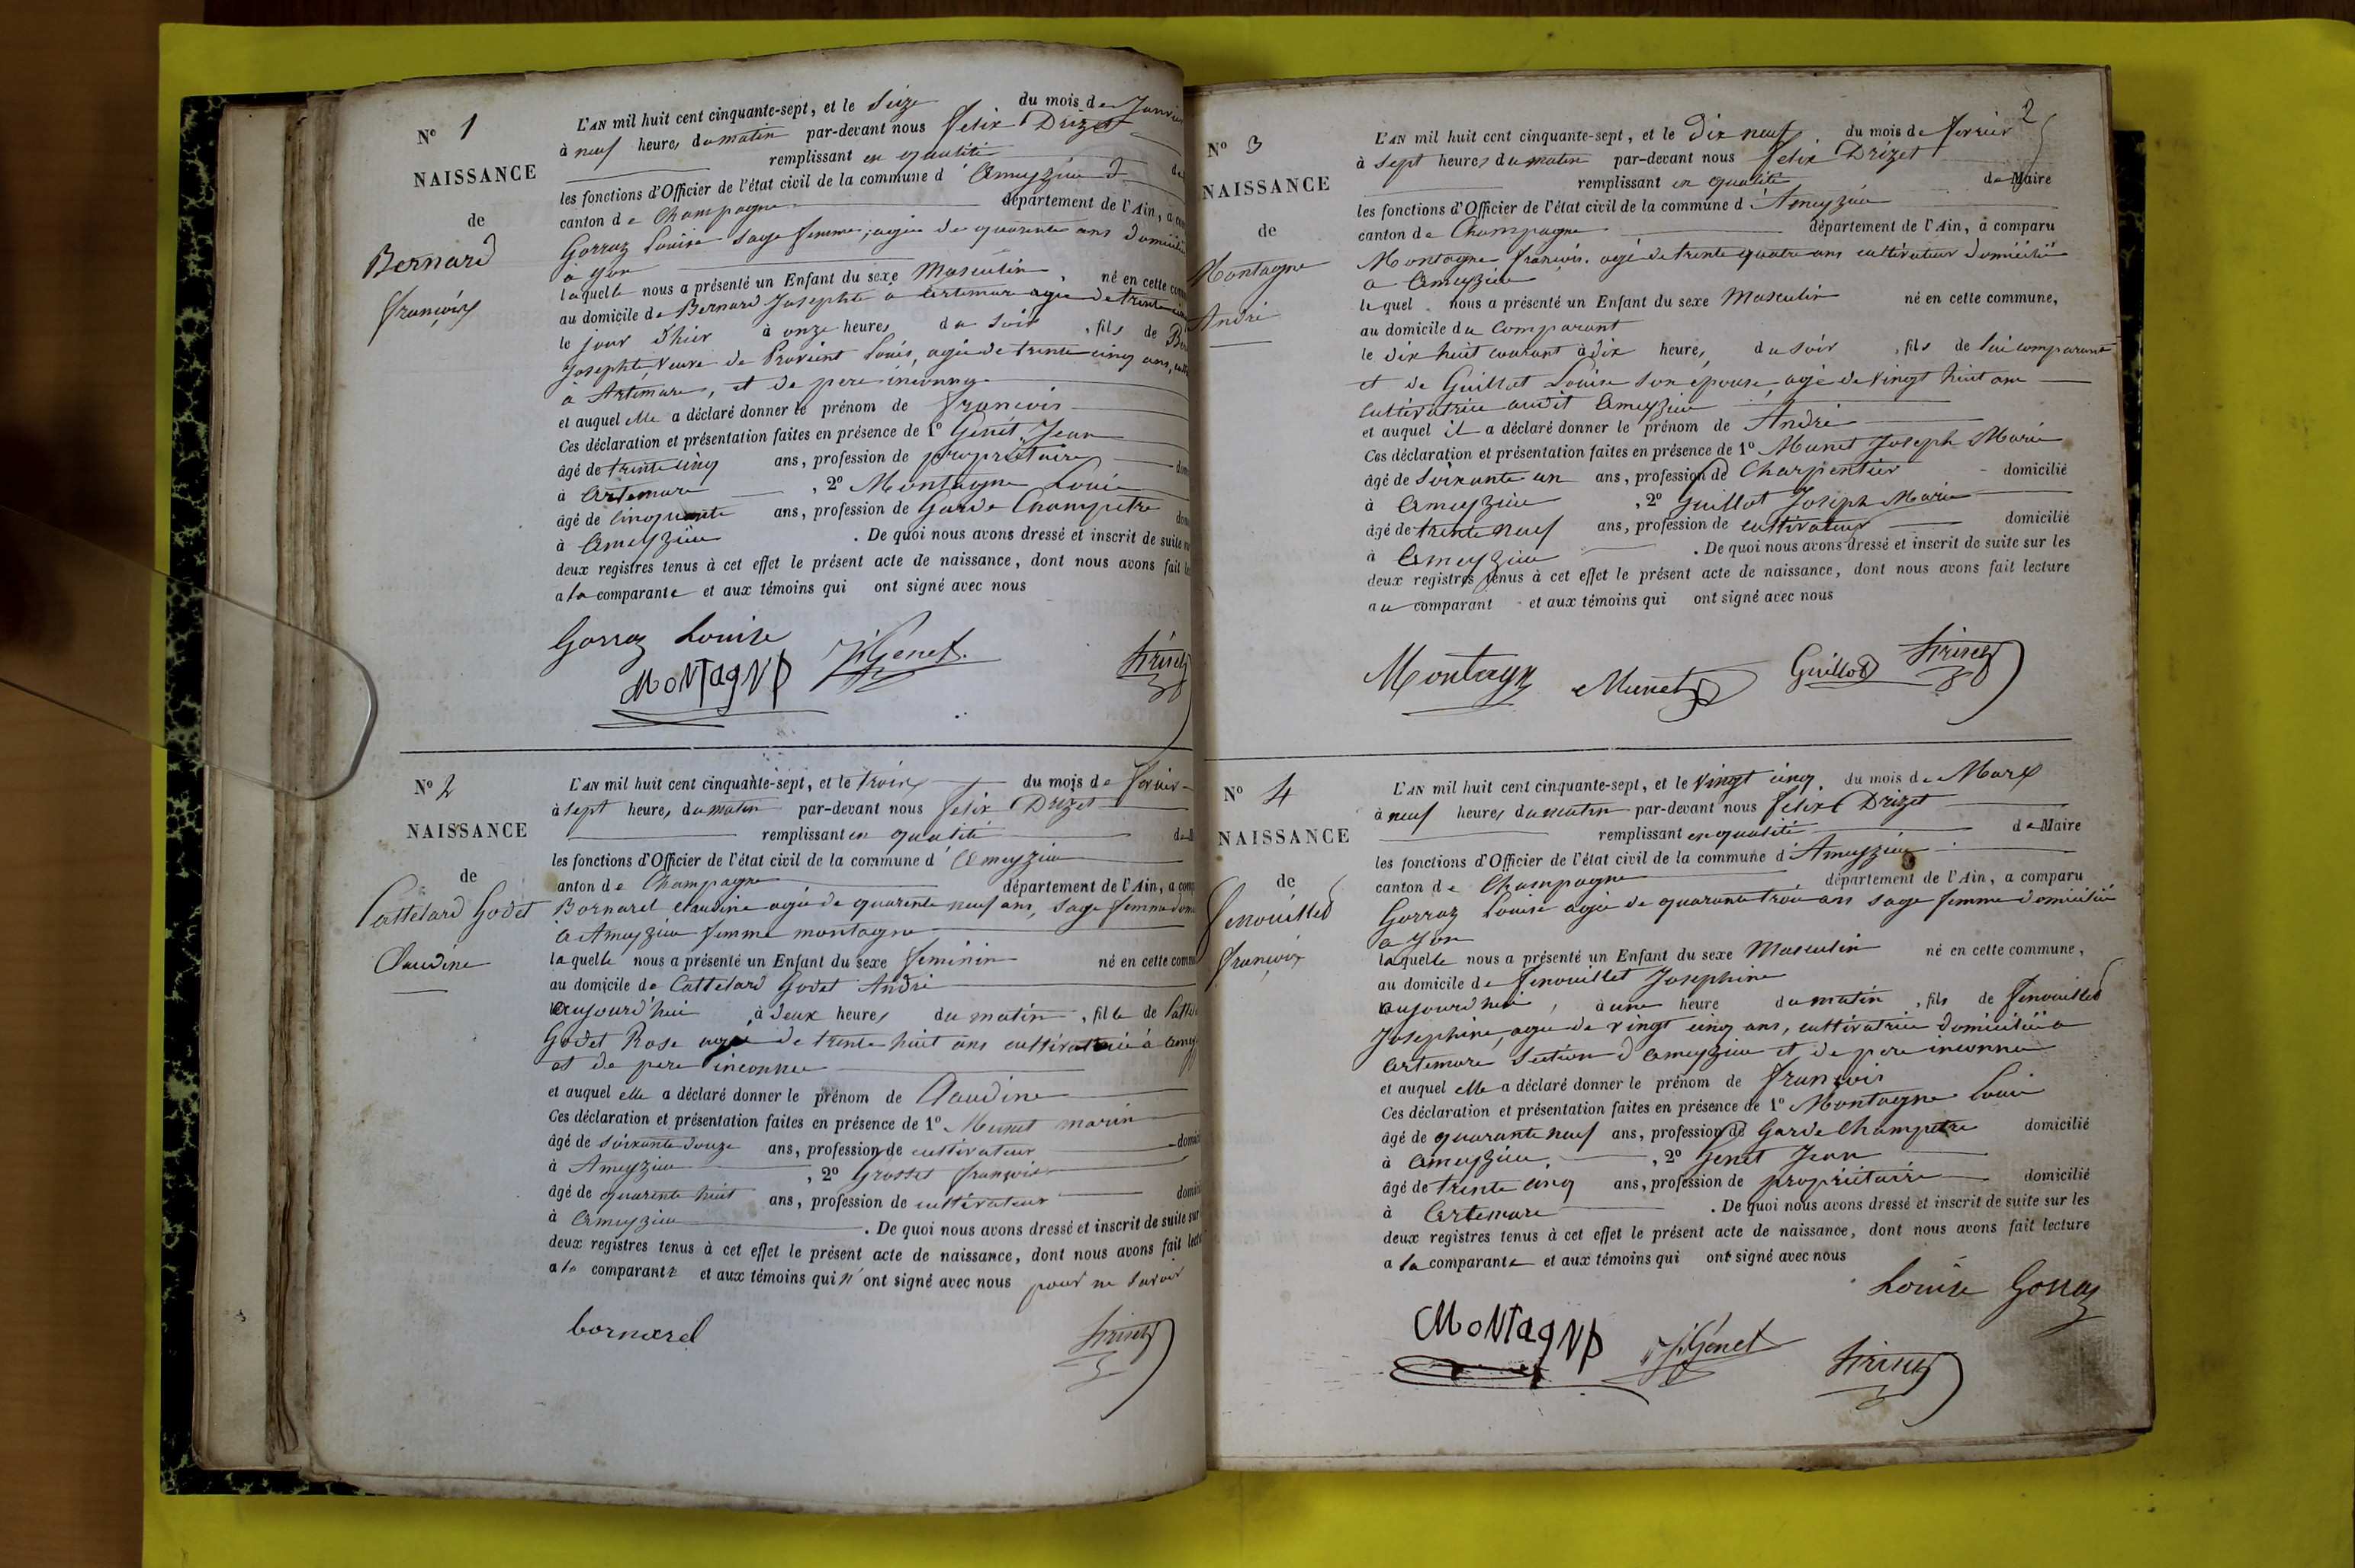 N° 1
NAISSANCE
de
Bernard
françois
L'AN mil huit cent cinquante-sept, et le Seize du mois de Janvier
à neuf heures du matin par-devant nous felix Drizet
remplissant en qualité de
les fonctions d'Officier de l'état civil de la commune d'Ameyzieu
canton de Champagne département de l'Ain, a com
Gorraz Louise sage femme, agée de quarente ans domiciliée
à yon
laquelle nous a présenté un Enfant du sexe Masculin, né en cette comm
au domicile de Bernard Josephte à Artemare agée de trente cinq
le jour d'hier à onze heures du soir, fils de Ber
Josephte, veuve de Louis, agée de trente cinq ans, cult
à Artemare, et de pere inconnu
et auquel elle a déclaré donner le prénom de françois
Ces déclaration et présentation faites en présence de 1° Genet Jean
âgé de trente cinq ans, profession de propriétaire dom
à Artemare, 2° Montagne Louis
âgé de cinquante ans, profession de Garde Champetre dom
à Ameyzieu. De quoi nous avons dressé et inscrit de suite sur
deux registres tenus à cet effet le présent acte de naissance, dont nous avons fait lec
a la comparante et aux témoins qui ont signé avec nous
Gorraz Louise
MoNTagNp Genet
N° 2
NAISSANCE
de
Cattelard Godet
Claudine
L'AN mil huit cent cinquante-sept, et le trois du mois de fevrier
à sept heures du matin par-devant nous felix Drizet
remplissant en qualité de M
les fonctions d'Officier de l'état civil de la commune d'Ameyzieu
canton de Champagne département de l'Ain, a comp
Bornarel claudine agée de quarente neuf ans, sage femme dom
à Ameyzieu femme montagne
laquelle nous a présenté un Enfant du sexe feminin né en cette comm
au domicile de Cattelard Godet André
aujourd'hui à deux heures du matin, fille de Catte
Godet Rose agée de trente huit ans cultivatrice à amey
et de pere inconnu
et auquel elle a déclaré donner le prénom de Claudine
Ces déclaration et présentation faites en présence de 1° Munet marin
âgé de soixante douze ans, profession de cultivateur domici
à Ameyzieu, 2° Grosset françois
âgé de quarente huit ans, profession de cultivateur domici
à Ameyzieu. De quoi nous avons dressé et inscrit de suite sur
deux registres tenus à cet effet le présent acte de naissance, dont nous avons fait lectu
a la comparante et aux témoins qui n'ont signé avec nous pour ne savoir
bornarel
2
N° 3
NAISSANCE
de
Montagne
André
L'AN mil huit cent cinquante-sept, et le dix neuf du mois de fevrier
à sept heures du matin par-devant nous felix Drizet
remplissant en qualité de Maire
les fonctions d'Officier de l'état civil de la commune d'Ameyzieu
canton de Champagne département de l'Ain, a comparu
Montagne françois. agé de trente quatre ans cultivateur domicilié
a Ameyzieu
lequel nous a présenté un Enfant du sexe Masculin né en cette commune,
au domicile du comparant
le dix huit courant à dix heures du soir, fils de lui comparant
et de Guillot Louise son epouse, agé de vingt huit ans
cultivatrice audit Ameyzieu
et auquel il a déclaré donner le prénom de André
Ces déclaration et présentation faites en présence de 1° Munet Joseph Marie
âgé de soixante un ans, profession de Charpentier domicilié
à Ameyzieu, 2° Guillot Joseph Marie
âgé de trente neuf ans, profession de cultivateur domicilié
à Ameyzieu. De quoi nous avons dressé et inscrit de suite sur les
deux registres tenus à cet effet le présent acte de naissance, dont nous avons fait lecture
au comparant et aux témoins qui ont signé avec nous
Montagn Munet Guillot
N° 4
NAISSANCE
de
fenouillet
françois
L'AN mil huit cent cinquante-sept, et le vingt cinq du mois de Mars
à neuf heures du matin par-devant nous felix Drizet
remplissant en qualité de Maire
les fonctions d'Officier de l'état civil de la commune d'Ameyzieu
canton de Champagne département de l'Ain, a comparu
Gorraz Louise agée de quarante trois ans sage femme domiciliée
a yon
laquelle nous a présenté un Enfant du sexe Masculin né en cette commune,
au domicile de fenouillet Josephine
aujourd'hui, à une heure du matin, fils de fenouillet
Josephine, agee de vingt cinq ans, cultivatrice domiciliée a
Artemare section d'Ameyzieu et de pere inconnu
et auquel elle a déclaré donner le prénom de françois
Ces déclaration et présentation faites en présence de 1° Montagne Louis
âgé de quarante neuf ans, profession de Garde Champetre domicilié
à Ameyzieu, 2° Genet Jean
âgé de trente cinq ans, profession de propriétaire domicilié
à Artemare. De quoi nous avons dressé et inscrit de suite sur les
deux registres tenus à cet effet le présent acte de naissance, dont nous avons fait lecture
a la comparante et aux témoins qui ont signé avec nous
Louise Gorraz
MoNTagNp Genet